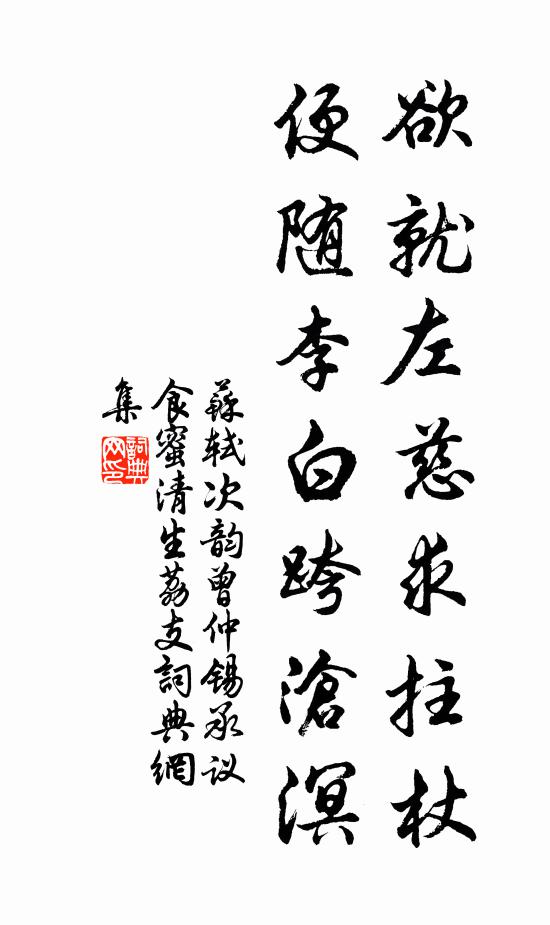 欲就左慈求拄杖
便随李白跨滄溟
蘇軾次韵曾仲錫承议
食蜜清生荔支詞典網
集
詞典網